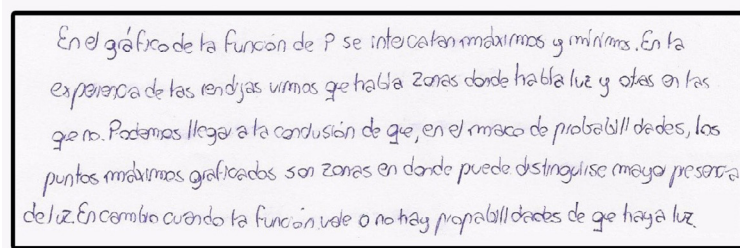 En el gráfico de la función de P se intercalan máximos y mínimos. En la
experiencia de las rendijas vimos que había zonas donde había luz y otras en las
que no. Podemos llegar a la conclusión de que, en el marco de probabilidades, los
puntos máximos graficados son zonas en donde puede distinguirse mayor presencia
de luz. En cambio cuando la función vale 0 no hay propabilidades de que haya luz.